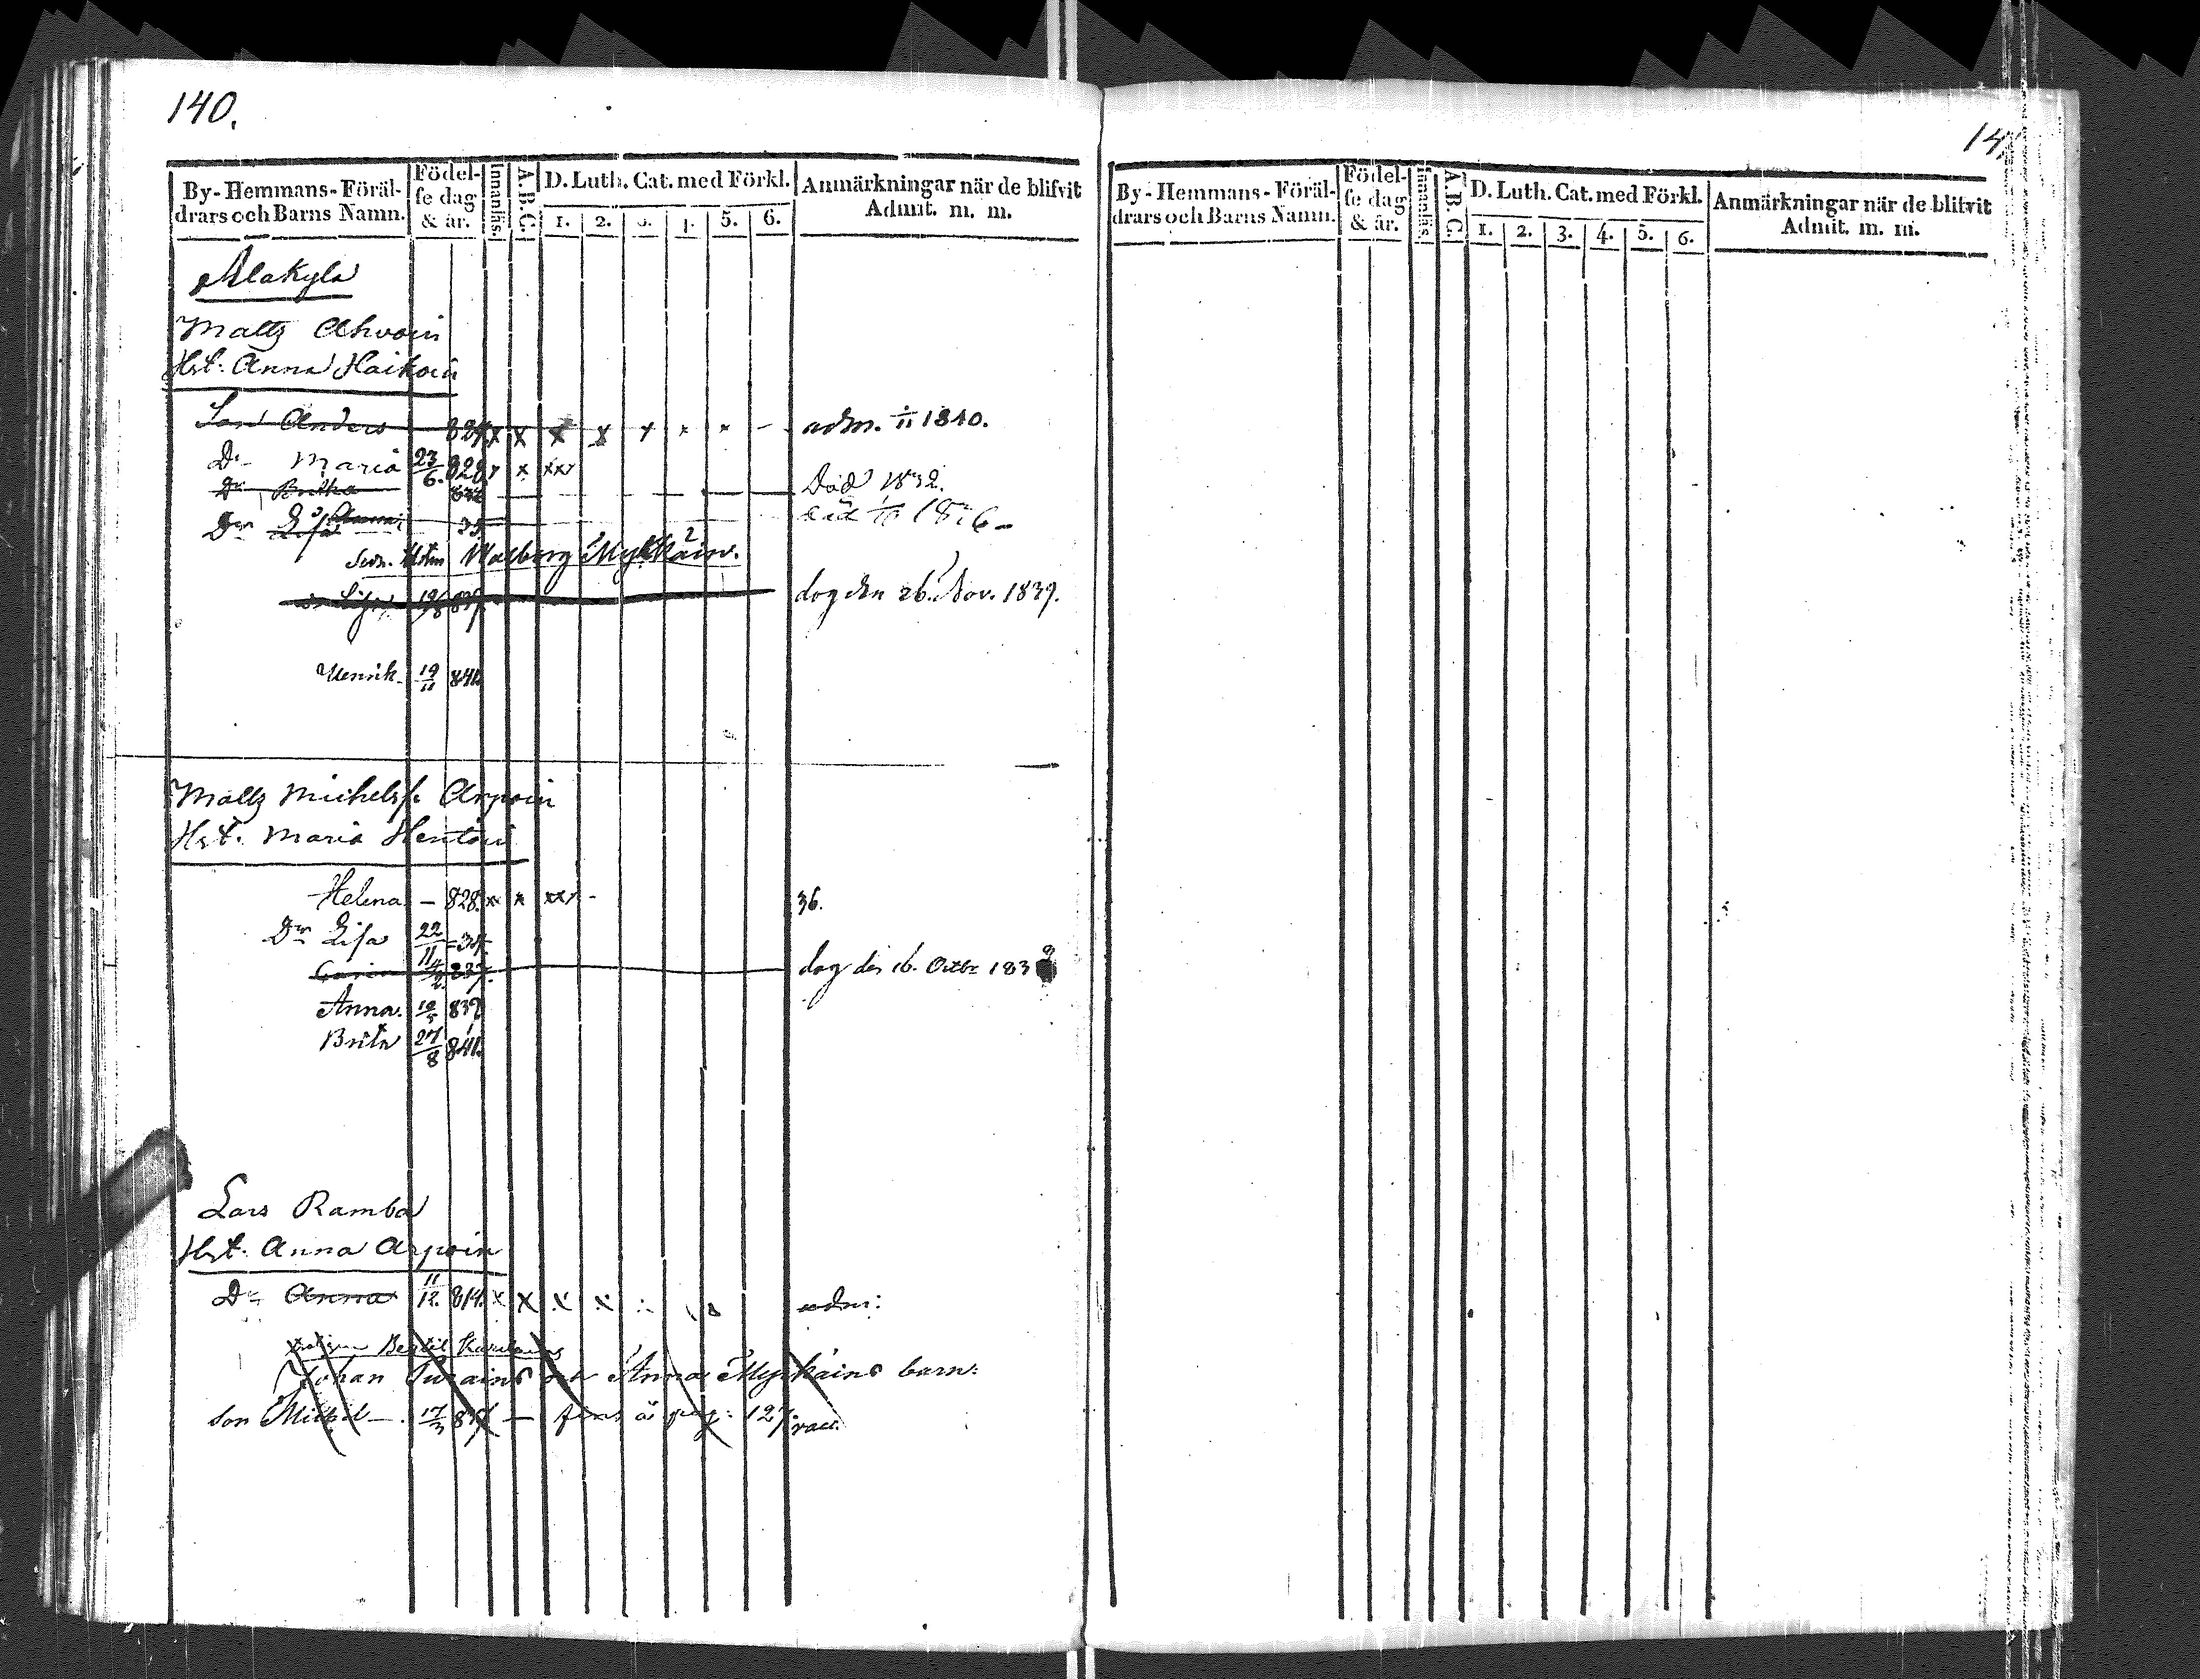 140.
By- Hemmans- Föräl-
drars och Barns Namn.
Födel-
se dag
& år.
Innanläs.
A.B.C.
D. Luth. Cat. med Förkl.
1. 2. 3. 4. 5. 6.
Anmärkningar när de blifvit
Admit. m. m.
Alakylä
Matts Ahvoin
Hst. Anna Haikoin
Son Anders 824 x x x x x x x - adm. 1840.
Dr Maria 23/6. 828 x x xxx
Dr Britha 832 Död 1832.
Dr Lisa Anna 35
Walborg Mykkäin.
19/8 839 dog den 26. Nov. 1839.
Henrik 19/11 841.
Matts Michelss. Arpoin
Hst. Maria Hentoin
Helena - 828. x x xxx - 36.
Dr Lisa 22/11 -34
837. dog den 16. Octbr 1839
Anna. 839
Brita 27/8 841.
Lars Ramba
Hst. Anna Arpoin
Dr Anna 11/12. 814. x x x x adm:
Bertil
Johan Anna Mykkäins barn:
Son Michel - 17/3 127.
141
By- Hemmans- Föräl-
drars och Barns Namn.
Födel-
se dag
& år.
Innanläs.
A.B.C.
D. Luth. Cat. med Förkl.
1. 2. 3. 4. 5. 6.
Anmärkningar när de blifvit
Admit. m. m.